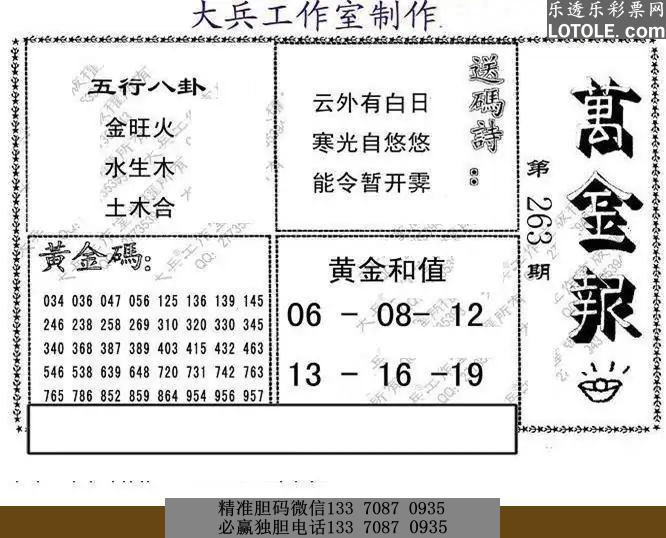 大兵工作室制作
乐透乐彩票网
LOTOLE.COM
五行八卦
金旺火
水生木
土木合
送碼詩：
云外有白日
寒光自悠悠
能令暂开霁
萬金報
第263期
黃金碼：
034 036 047 056 125 136 139 145
246 238 258 269 310 320 330 345
340 368 387 389 403 415 432 463
546 538 639 648 720 731 742 763
765 786 852 859 864 954 956 957
黄金和值
06 - 08- 12
13 - 16 -19
精准胆码微信133 7087 0935
必赢独胆电话133 7087 0935